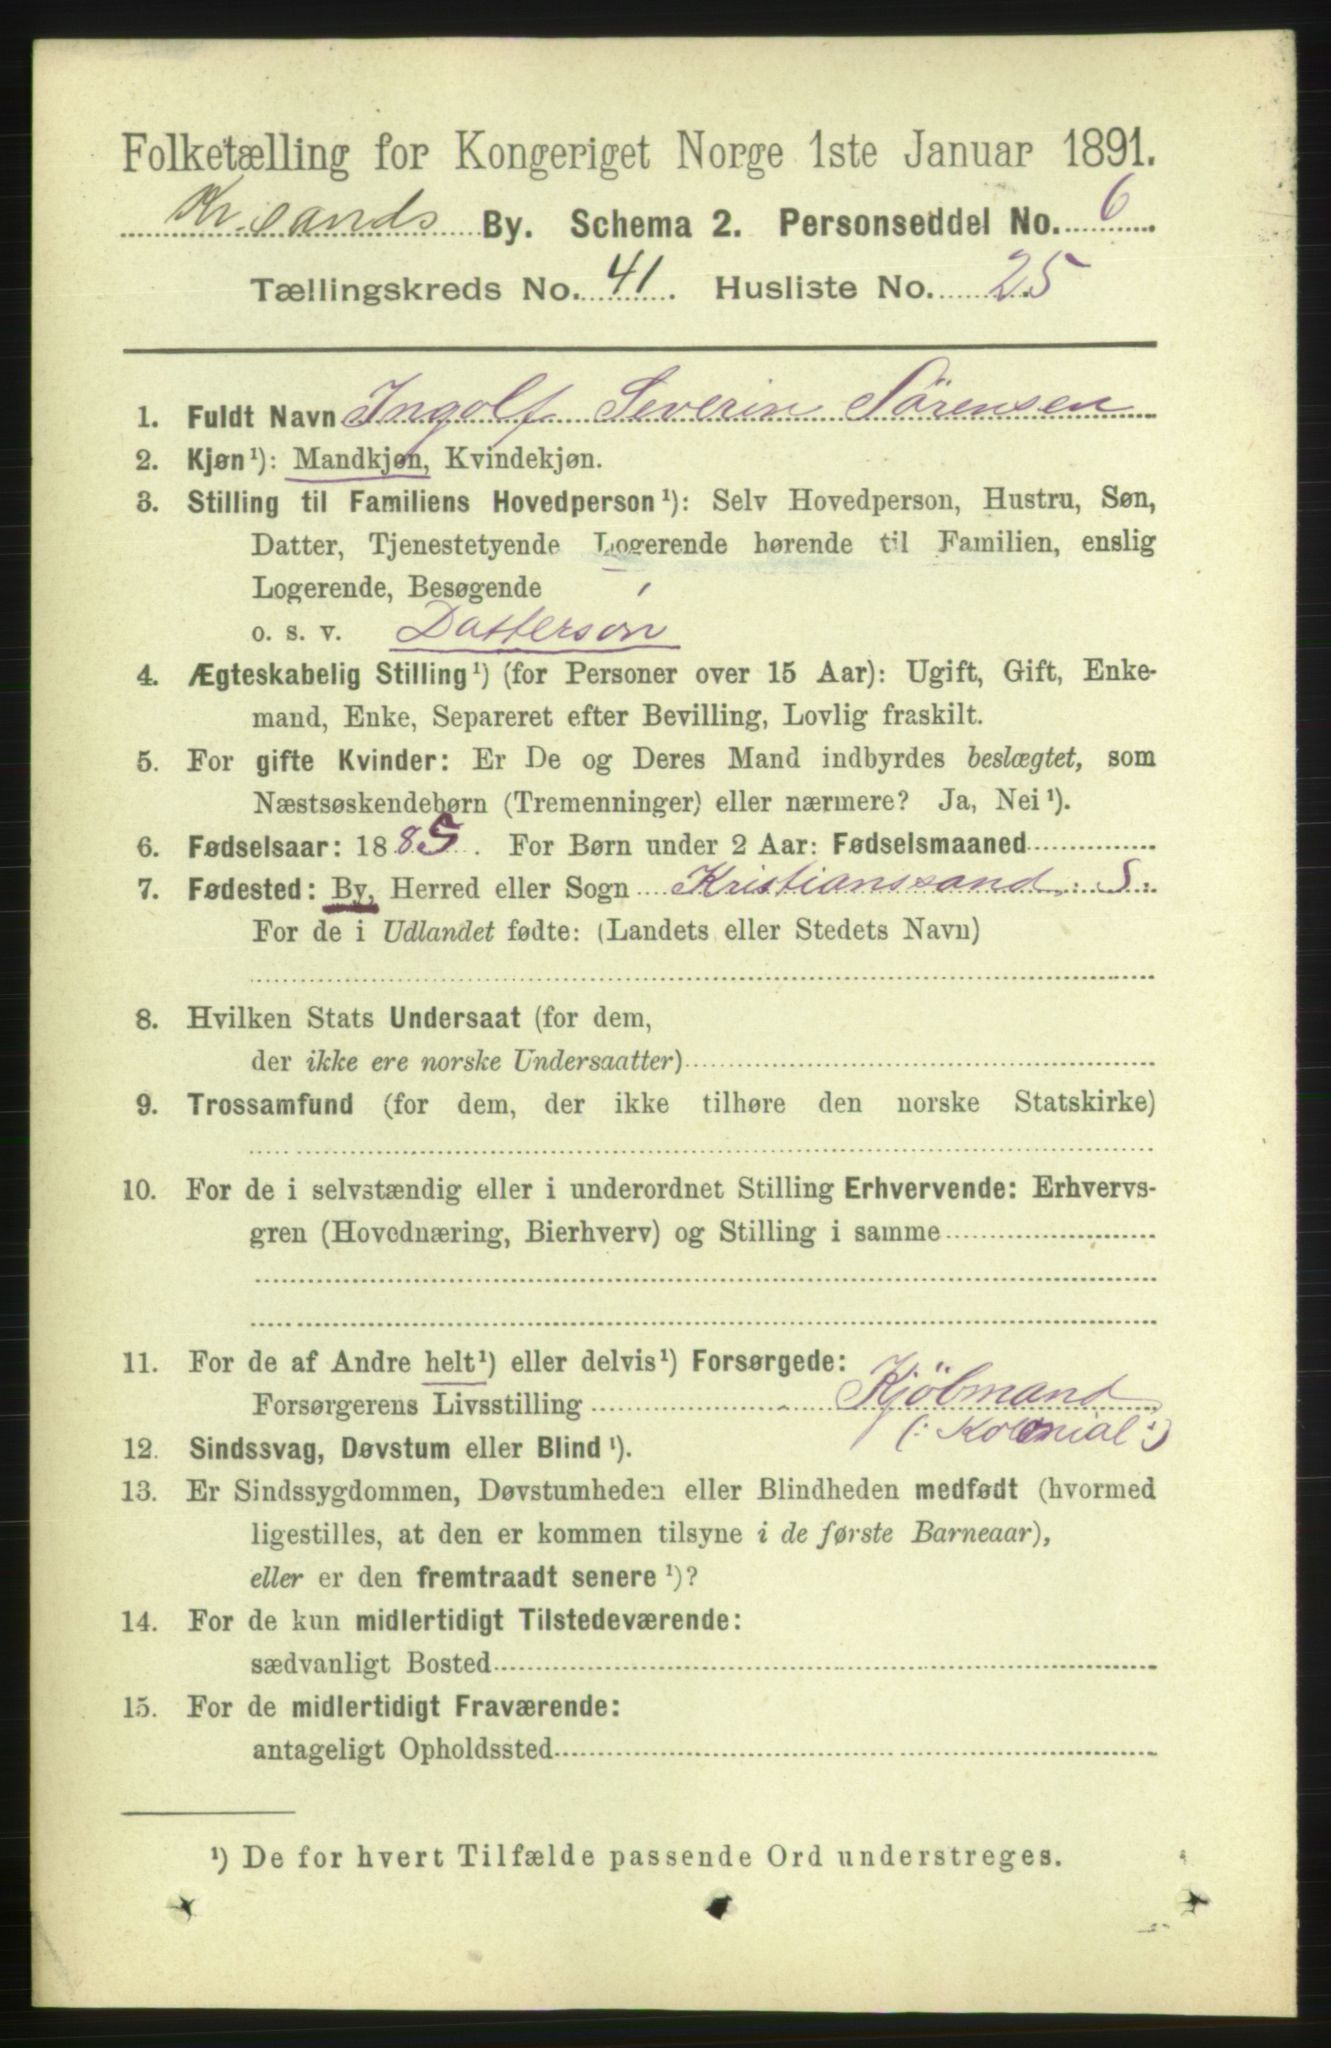 Folketælling for Kongeriget Norge 1ste Januar 1891.
Kr.sands By. Schema 2. Personseddel No. 6
Tællingskreds No. 41. Husliste No. 25
1. Fuldt Navn Ingolf Severin Sørensen
2. Kjøn¹): Mandkjøn, Kvindekjøn.
3. Stilling til Familiens Hovedperson¹): Selv Hovedperson, Hustru, Søn,
Datter, Tjenestetyende Logerende hørende til Familien, enslig
Logerende, Besøgende
o. s. v. Dattersøn
4. Ægteskabelig Stilling¹) (for Personer over 15 Aar): Ugift, Gift, Enke-
mand, Enke, Separeret efter Bevilling, Lovlig fraskilt.
5. For gifte Kvinder: Er De og Deres Mand indbyrdes beslægtet, som
Næstsøskendebørn (Tremenninger) eller nærmere? Ja, Nei¹).
6. Fødselsaar: 1885. For Børn under 2 Aar: Fødselsmaaned
7. Fødested: By, Herred eller Sogn Kristianssand. S.
For de i Udlandet fødte: (Landets eller Stedets Navn)
8. Hvilken Stats Undersaat (for dem,
der ikke ere norske Undersaatter)
9. Trossamfund (for dem, der ikke tilhøre den norske Statskirke)
10. For de i selvstændig eller i underordnet Stilling Erhvervende: Erhvervs-
gren (Hovednæring, Bierhverv) og Stilling i samme
11. For de af Andre helt¹) eller delvis¹) Forsørgede:
Forsørgerens Livsstilling Kjöbmand
(: Kolonial :)
12. Sindssvag, Døvstum eller Blind¹).
13. Er Sindssygdommen, Døvstumheden eller Blindheden medfødt (hvormed
ligestilles, at den er kommen tilsyne i de første Barneaar),
eller er den fremtraadt senere¹)?
14. For de kun midlertidigt Tilstedeværende:
sædvanligt Bosted
15. For de midlertidigt Fraværende:
antageligt Opholdssted
¹) De for hvert Tilfælde passende Ord understreges.